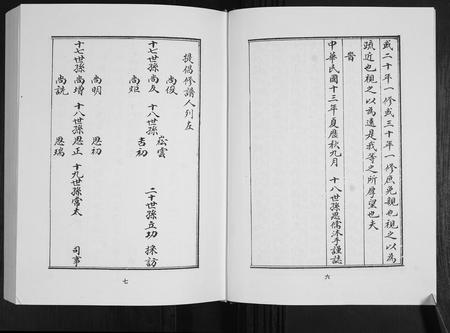 或二十年一修或三十年一修庶先親也視之以為
疏近也視之以為遠是我等之所厚望也夫
旹
中華民國十三年夏歷秋九月 十八世孫恩儒沐手謹誌
六
提倡修譜人列左
尚俊 崧雲
十七世孫尚友 十八世孫 二十世孫立功 採訪
尚矩 吉初
尚明 恩初
十七世孫尚增 十八世孫恩正 十九世孫常太 司事
尚説 恩瑞
七